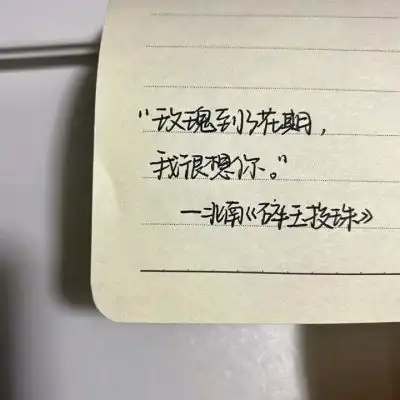 “玫瑰到了花期，
我很想你。”
—北南《碎玉投珠》